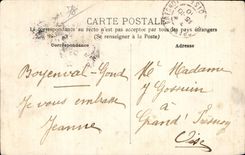 CARTE POSTALE
La correspondance au recto n'est pas acceptée par tous les pays étrangers
(Se renseigner à la Poste)
Correspondance
Adresse
Boyenval-Gond
Je vous embrasse
Jeanne
Mr Madame
J Gossuin
à
Grand Fresnoy
Oise